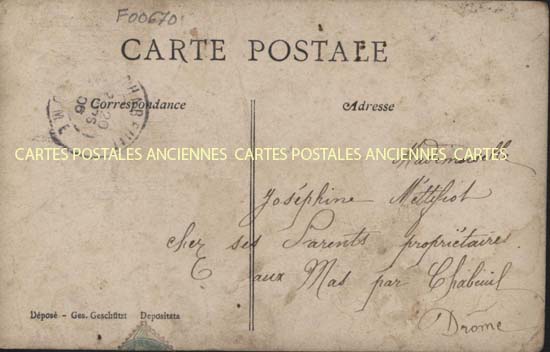 F00670
CARTE POSTALE
Correspondance
Adresse
CHABEUIL
20
06
CARTES POSTALES ANCIENNES CARTES POSTALES ANCIENNES
Mademoiselle
Joséphine
chez ses Parents propriétaires
aux Mas par Chabeuil
Drôme
Déposé – Ges. Geschützt Depositata